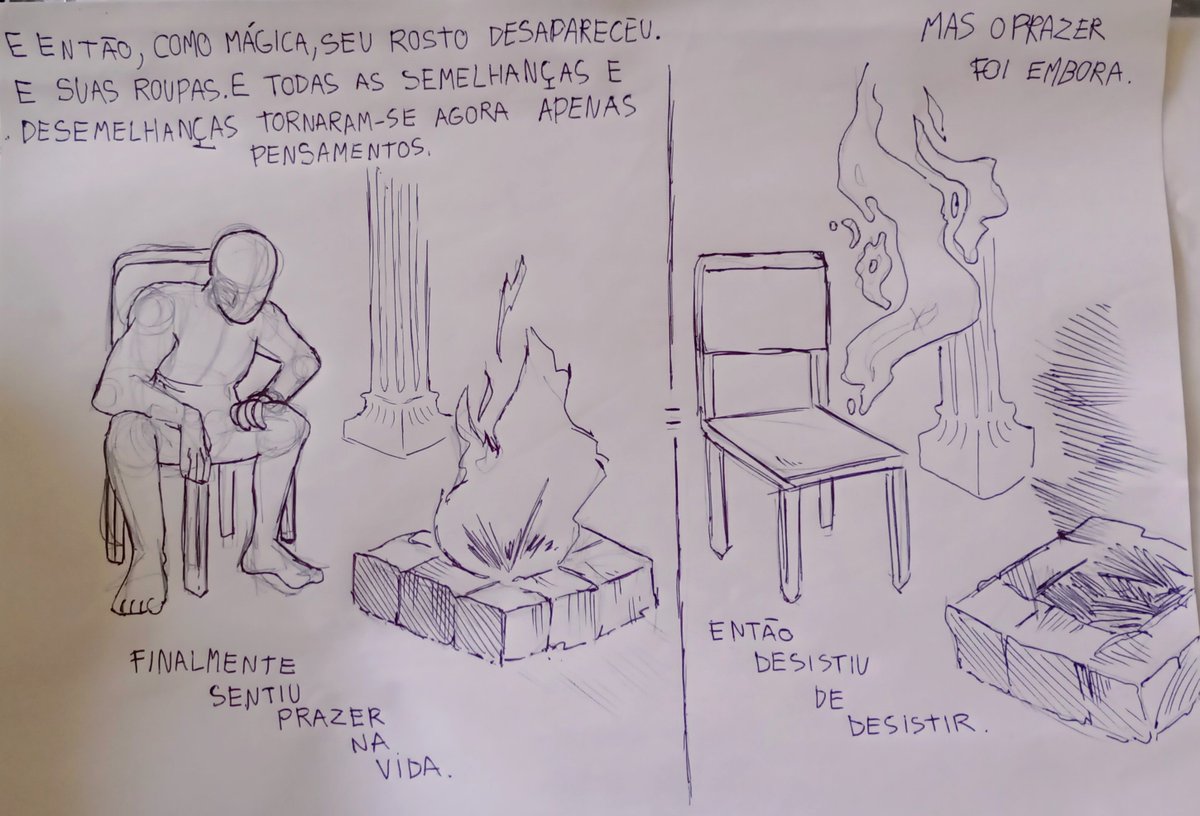 E ENTÃO, COMO MÁGICA, SEU ROSTO DESAPARECEU.
E SUAS ROUPAS. E TODAS AS SEMELHANÇAS E
DESEMELHANÇAS TORNARAM-SE AGORA APENAS
PENSAMENTOS.
FINALMENTE
SENTIU
PRAZER
NA
VIDA.
MAS O PRAZER
FOI EMBORA.
ENTÃO
DESISTIU
DE
DESISTIR.